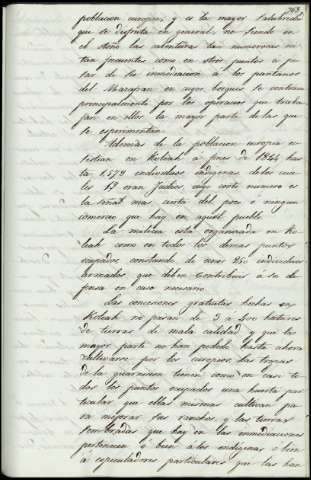 263
poblacion europea, y es la mayor salubridad
que se disfruta en general, no siendo en
el otoño las calenturas tan numerosas ni
tan frecuentes como en otros puntos a pe-
sar de su inmediacion à los pantanos
del Mazafran en cuyos bosques se contraen
principalmente por los operarios que traba-
jan en ellos la mayor parte de las que
se esperimentan.
Además de la poblacion europea ec-
sistian en Koleah á fines de 1844 has
ta 1578 individuos indigenas de los cua-
les 13 eran Judios cuyo corto numero es
la señal mas cierta del poco ó ningun
comercio que hay en aquel pueblo.
La milicia está organizada en Ko-
leah como en todos los demas puntos
ocupados, constando de unos 250 individuos
armados que deben contribuir à su de-
fensa en caso necesario.
Las concesiones gratuitas hechas en
Koleah no pasan de 3 á 400 hectares
de tierras de mala calidad y que la
mayor parte no han podido hasta ahora
cultivarse por los europeos, las tropas
de la guarnicion tienen como en casi to
dos los puntos ocupados una huerta par
ticular que ellas mismas cultivan pa
ra mejorar sus ranchos, y las tierras
sembradas que hay en las inmediaciones
pertenecen ó bien á los indigenas o bien
à especuladores particulares que las han